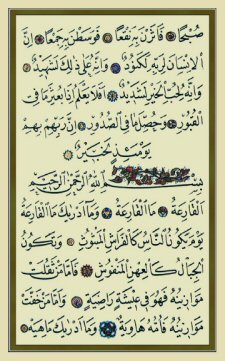 صُبْحًا فَأَثَرْنَ بِهِ نَقْعًا فَوَسَطْنَ بِهِ جَمْعًا إِنَّ
الْإِنْسَانَ لِرَبِّهِ لَكَنُودٌ وَإِنَّهُ عَلَى ذَلِكَ لَشَهِيدٌ
وَإِنَّهُ لِحُبِّ الْخَيْرِ لَشَدِيدٌ أَفَلَا يَعْلَمُ إِذَا بُعْثِرَ مَا فِي
الْقُبُورِ وَحُصِّلَ مَا فِي الصُّدُورِ إِنَّ رَبَّهُمْ بِهِمْ
يَوْمَئِذٍ لَخَبِيرٌ
بِسْمِ اللَّهِ الرَّحْمَنِ الرَّحِيمِ
الْقَارِعَةُ مَا الْقَارِعَةُ وَمَا أَدْرَاكَ مَا الْقَارِعَةُ
يَوْمَ يَكُونُ النَّاسُ كَالْفَرَاشِ الْمَبْثُوثِ وَتَكُونُ
الْجِبَالُ كَالْعِهْنِ الْمَنْفُوشِ فَأَمَّا مَنْ ثَقُلَتْ
مَوَازِينُهُ فَهُوَ فِي عِيشَةٍ رَاضِيَةٍ وَأَمَّا مَنْ خَفَّتْ
مَوَازِينُهُ فَأُمُّهُ هَاوِيَةٌ وَمَا أَدْرَاكَ مَا هِيَهْ